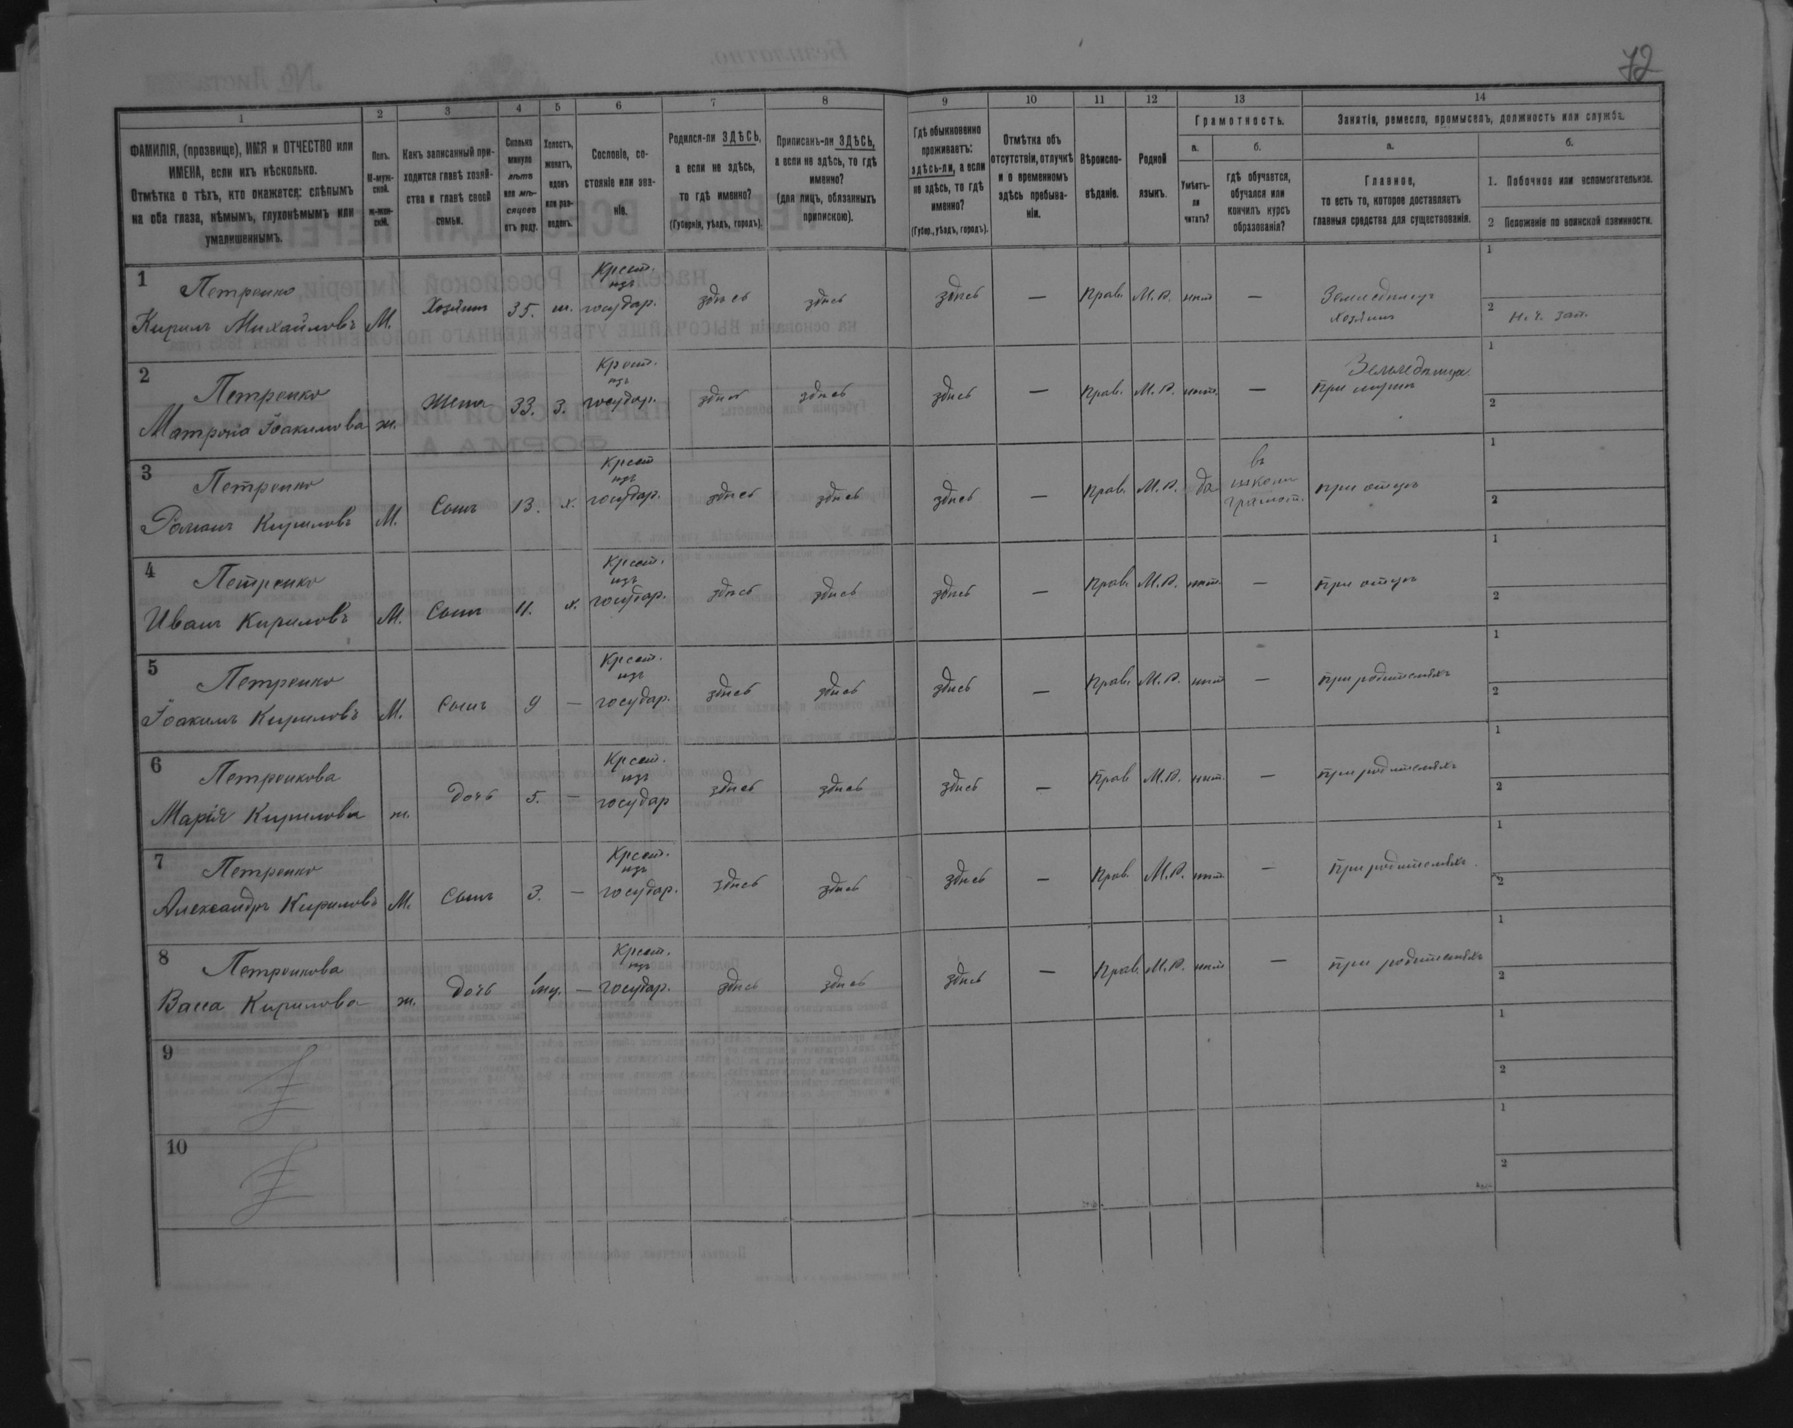 72
1
2
3
4
5
6
7
8
9
10
11
12
13
14
ФАМИЛІЯ, (прозвище), ИМЯ и ОТЧЕСТВО или
ИМЕНА, если ихъ нѣсколько.
Отмѣтка о тѣхъ, кто окажется: слѣпымъ
на оба глаза, нѣмымъ, глухонѣмымъ или
умалишеннымъ.
Полъ.
М-муж-
ской.
ж-жен-
скій.
Какъ записанный при-
ходится главѣ хозяй-
ства и главѣ своей
семьи.
Сколько
минуло
лѣтъ
или мѣ-
сяцевъ
отъ роду.
Холостъ,
женатъ,
вдовъ
или раз-
веденъ.
Сословіе, со-
стояніе или зва-
ніе.
Родился-ли ЗДѢСЬ,
а если не здѣсь,
то гдѣ именно?
(Губернія, уѣздъ, городъ).
Приписанъ-ли ЗДѢСЬ,
а если не здѣсь, то гдѣ
именно?
(для лицъ, обязанныхъ
припискою).
Гдѣ обыкновенно
проживаетъ:
здѣсь-ли, а если
не здѣсь, то гдѣ
именно?
(Губер., уѣздъ, городъ).
Отмѣтка объ
отсутствіи, отлучкѣ
и о временномъ
здѣсь пребыва-
ніи.
Вѣроиспо-
вѣданіе.
Родной
языкъ.
Грамотность.
а.
Умѣетъ-
ли
читать?
б.
гдѣ обучается,
обучался или
кончилъ курсъ
образованія?
Занятія, ремесло, промыселъ, должность или служба.
а.
Главное,
то есть то, которое доставляетъ
главныя средства для существованія.
б.
1. Побочное или вспомогательное.
2 Положеніе по воинской повинности.
1 Петренко Крест. изъ 1
Кирилъ Михайловъ М. Хозяинъ 35. ж. государ. здѣсь здѣсь здѣсь — Прав. М.Р. нѣт — Земледѣлецъ хозяинъ 2 Н. ч. зап.
2 Петренко Крест. изъ Земледѣлица 1
Матрона Іоакимова ж. Жена 33. З. государ. здѣсь здѣсь здѣсь — Прав. М.Р. нѣт. — при мужѣ 2
3 Петренко Крест изъ въ 1
Романъ Кириловъ М. Сынъ 13. х. государ. здѣсь здѣсь здѣсь — Прав. М.Р. да школѣ грамот. при отцѣ 2
4 Петренко Крест. изъ 1
Иванъ Кириловъ М. Сынъ 11. х. государ. здѣсь здѣсь здѣсь Прав. М.Р. нѣт. — при отцѣ 2
5 Петренко Крест. изъ 1
Іоакимъ Кириловъ М. Сынъ 9 — государ. здѣсь здѣсь здѣсь — Прав. М.Р. нѣт — при родителяхъ 2
6 Петренкова Крест. изъ 1
Марія Кирилова ж. дочь 5. — государ здѣсь здѣсь здѣсь — Прав М.Р. нѣт. — при родителяхъ 2
7 Петренко Крест. изъ 1
Александръ Кириловъ М. Сынъ 3. — государ. здѣсь здѣсь здѣсь — Прав. М.Р. нѣт — при родителяхъ 2
8 Петренкова Крест. изъ 1
Васса Кирилова ж. дочь — государ. здѣсь здѣсь здѣсь — Прав. М.Р. нѣт — при родителяхъ 2
9 1
2
10 1
2